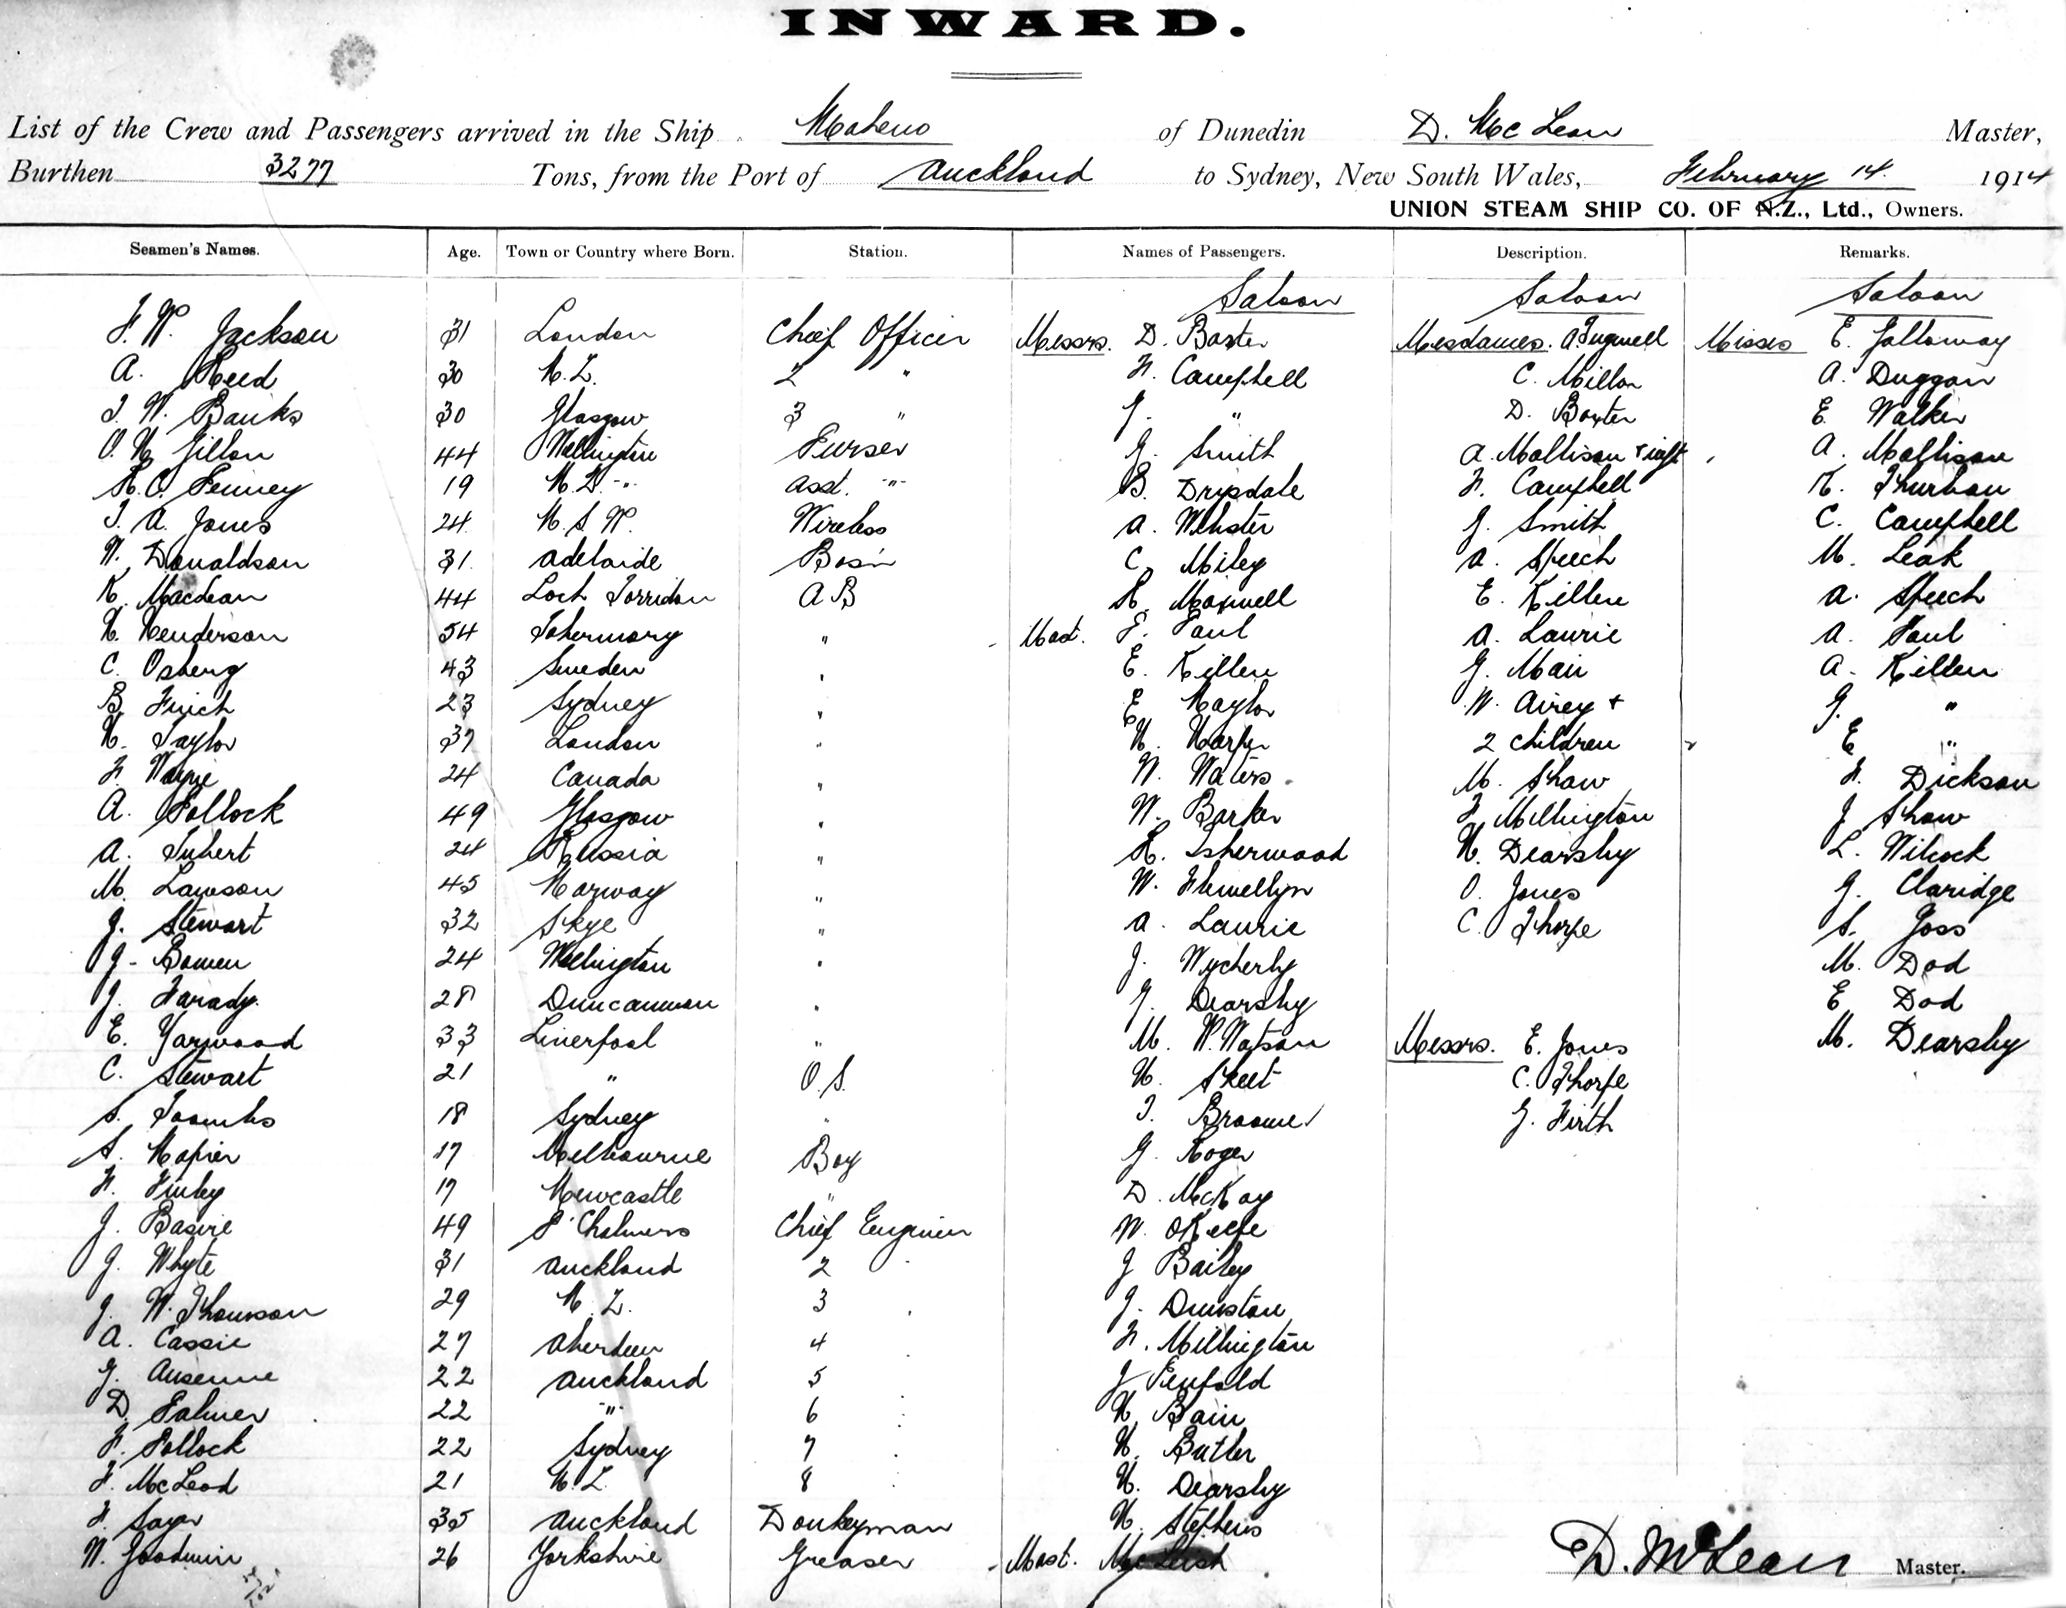 INWARD.
List of the Crew and Passengers arrived in the Ship Maheno of Dunedin D. McLean Master,
Burthen 3277 Tons, from the Port of Auckland to Sydney, New South Wales, February 14. 1914
UNION STEAM SHIP CO. OF N.Z., Ltd., Owners.
Seamen's Names. Age. Town or Country where Born. Station. Names of Passengers. Description. Remarks.
Saloon Saloon Saloon
F. W. Jackson 31 London Chief Officer Messrs. D. Baxter Mesdames. A. Tugwell Misses E. Galloway
A. Reed 30 N.Z. 2 " H. Campbell C. Millar A. Duggan
T. W. Banks 30 Glasgow 3 " G. " D. Baxter E. Walker
O. H. Gillon 44 Wellington Purser G. Smith A. Mallison & inft A. Mallison
R. C. Penney 19 N.Z. " Asst. " B. Drysdale H. Campbell K. Thurban
T. A. Jones 24 N.S.W. Wireless A. Webster G. Smith C. Campbell
W. Donaldson 31 Adelaide Bos'n C. Miley A. Speech M. Leak
K. Maclean 44 Loch Torridon A B R. Maxwell E. Killen A. Speech
H. Henderson 54 Tobermory " Mast. F. Paul A. Laurie A. Paul
C. Osberg 43 Sweden " E. Killen G. Mair A. Killen
B. Finch 23 Sydney " E. Naylor W. Airey + G. "
H. Taylor 37 London " H. Harper 2 children E "
H. Wayne 24 Canada " W. Waters M. Shaw H. Dickson
A. Pollock 49 Glasgow " W. Barker F. Millington J. Shaw
A. Tubert 24 Russia " R. Isherwood H. Dearsby L. Wilcock
M. Lawson 45 Norway " W. Flewellyn O. Jones G. Claridge
J. Stewart 32 Skye " A. Laurie C. Thorpe S. Goss
J. Bowen 24 Wellington " J. Wycherly M. Dod
J. Farady 28 Duncannon " G. Dearsby E Dod
E. Yarwood 33 Liverpool " M. W. Watson Messrs. E. Jones M. Dearsby
C. Stewart 21 " O.S. H. Skeet C. Thorpe
S. Toombs 18 Sydney " T. Broome G. Firth
S. Napier 17 Melbourne Boy G. Roger
H. Finley 17 Newcastle " D. McKay
J. Basire 49 Pt Chalmers Chief Engineer W. OKeefe
J. Whyte 31 Auckland 2 " J Bailey
J. W. Thomson 29 N.Z. 3 " J. Dunstan
A. Cassie 27 Aberdeen 4 " F. Millington
G. Ausenne 22 Auckland 5 " J Penfold
D. Palmer 22 " 6 " H. Bain
F. Pollock 22 Sydney 7 " H. Butler
F. McLeod 21 N.Z. 8 " H. Dearsby
F. Sayer 35 Auckland Donkeyman H. Stephens
W. Goodwin 26 Yorkshire Greaser Mast. McLeish
D. McLean Master.